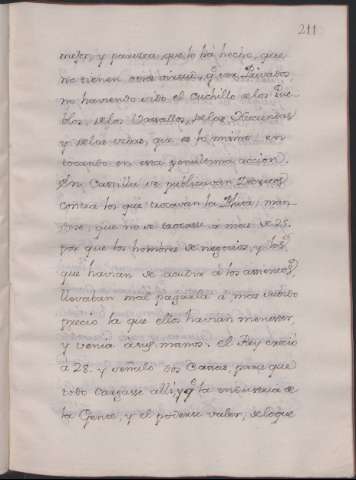 211
meses, y parecera, que lo há hecho, que
no tienen otra virtud, q.e los Privados,
no haviendo sido el cuchillo de los Pue-
blos, de los Vasallos, de las Haciendas
y de las vidas, que es lo mismo en
tocando en esta
accion.
En Castilla se publicavan
contra los que trocavan la Plata; man-
dose, que no se trocase a mas de 25.
por que los hombres de negocios, y los
que havian de acudir á los asientos,
llevaban mal pagarla á mas subido
precio la que ellos havian menester,
y venia á sus manos. el Rey creció
a 28. y señaló dos Casas, para que
todo cargase alli, y q.e la industria de
la Gente, y el poderse valer, de lo que